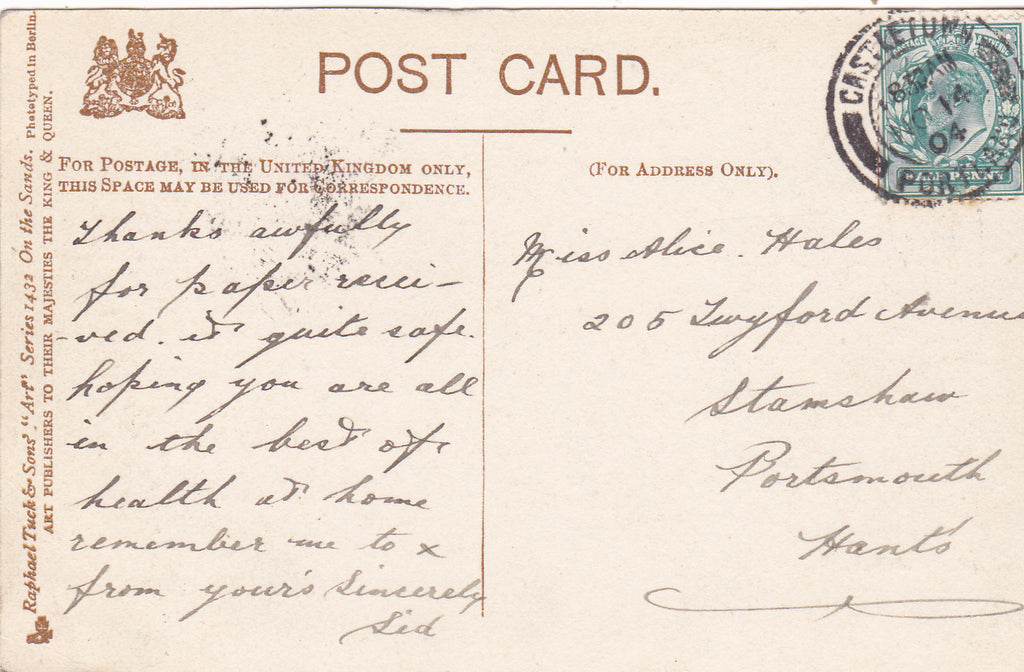 POST CARD.
FOR POSTAGE, IN THE UNITED KINGDOM ONLY,
THIS SPACE MAY BE USED FOR CORRESPONDENCE.
(FOR ADDRESS ONLY).
Thanks awfully
for paper recei-
-ved. it quite safe.
hoping you are all
in the best of
health at home
remember me to x
from your's Sincerely
Sid
Miss Alice. Hales
205 Twyford Avenue
Stamshaw
Portsmouth
Hants
Raphael Tuck & Sons' "Art" Series 1432 On the Sands. Phototyped in Berlin.
ART PUBLISHERS TO THEIR MAJESTIES THE KING & QUEEN.
CASTLETOWN
14
04
POSTAGE
PENNY